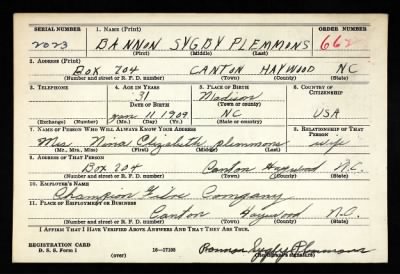 SERIAL NUMBER 1. NAME (Print) ORDER NUMBER
2023 BANNON SYGBY PLEMMONS 662
(First) (Middle) (Last)
2. ADDRESS (Print)
BOX 204 CANTON HAYWOOD NC
(Number and street or R. F. D. number) (Town) (County) (State)
3. TELEPHONE 4. AGE IN YEARS 5. PLACE OF BIRTH 6. COUNTRY OF CITIZENSHIP
31 Madison
DATE OF BIRTH (Town or county)
Jan 11 1909 NC USA
(Exchange) (Number) (Mo.) (Day) (Yr.) (State or country)
7. NAME OF PERSON WHO WILL ALWAYS KNOW YOUR ADDRESS 8. RELATIONSHIP OF THAT PERSON
Mrs Nina Elizabeth Plemmons wife
(Mr., Mrs., Miss) (First) (Middle) (Last)
9. ADDRESS OF THAT PERSON
Box 204 Canton Haywood N.C.
(Number and street or R. F. D. number) (Town) (County) (State)
10. EMPLOYER'S NAME
Champion Fibre Company
11. PLACE OF EMPLOYMENT OR BUSINESS
Canton Haywood N.C.
(Number and street or R. F. D. number) (Town) (County) (State)
I AFFIRM THAT I HAVE VERIFIED ABOVE ANSWERS AND THAT THEY ARE TRUE.
REGISTRATION CARD
D. S. S. Form 1 16—17105 Bannon Sygby Plemmons
(over) (Registrant's signature)